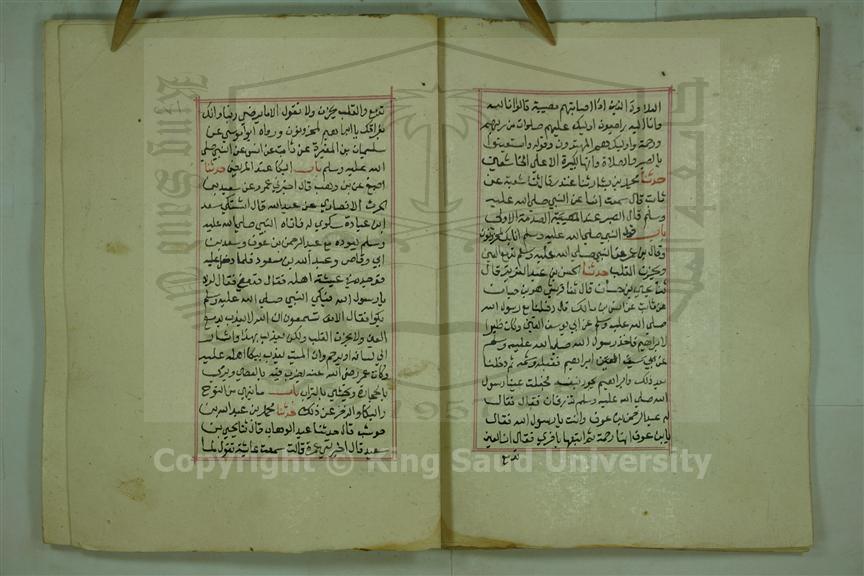 العلاوة الذين اذا اصابتهم مصيبة قالوا انا لله
وانا اليه راجعون اوليك عليهم صلوات من ربهم
ورحمة واوليك هم المهتدون وقوله واستعينوا
بالصبر والصلاة وانها لكبيرة الا على الخاشعين
حدثنا محمد بن بشار ثنا غندر قال ثنا شعبة عن
ثابت قال سمعت انسا عن النبي صلى الله عليه
وسلم قال الصبر عند الصدمة الاولى
باب قول النبي صلى الله عليه وسلم انا بك لمحزونون
وقال بن عمر عن النبي صلى الله عليه وسلم تدمع العين
ويحزن القلب حدثنا الحسن بن عبد العزيز قال
ثنا يحيى بن حسان قال ثنا قريش هو بن حيان
عن ثابت عن انس بن مالك قال دخلنا مع رسول الله
صلى الله عليه وسلم على ابي سيف القين وكان ظيرا
لابراهيم فاخذ رسول الله صلى الله عليه وسلم
ابراهيم فقبله وشمه ثم دخلنا
بعد ذلك وابراهيم يجود بنفسه فجعلت عينا رسول
الله صلى الله عليه وسلم تذرفان فقال
له عبد الرحمن بن عوف وانت يا رسول الله فقال
يا بن عوف انها رحمة ثم اتبعها باخرى فقال ان العين
تدمع
تدمع والقلب يحزن ولا نقول الا ما يرضي ربنا وانا
بفراقك يا ابراهيم لمحزونون ورواه موسى عن
سليمان بن المغيرة عن ثابت عن انس عن النبي صلى
الله عليه وسلم باب البكا عند المريض حدثنا
اصبغ عن بن وهب قال اخبرني عمرو عن سعيد بن
الحرث الانصاري عن عبد الله قال اشتكى سعد
ابن عبادة شكوى له فاتاه النبي صلى الله عليه
وسلم يعوده مع عبد الرحمن بن عوف وسعد بن
ابي وقاص وعبد الله بن مسعود فلما دخل عليه
فوجده في غاشية اهله فقال قد قضى فقالوا لا
يا رسول الله فبكى النبي صلى الله عليه وسلم
بكوا فقال الا تسمعون ان الله لا يعذب بدمع
العين ولا بحزن القلب ولكن يعذب بهذا واشار
الى لسانه او يرحم وان الميت يعذب ببكا اهله عليه
وكان عمر رضي الله عنه يضرب فيه بالعصى ويرمي
بالحجارة ويحثي بالتراب باب ما ينهى من النوح
والبكا والزجر عن ذلك حدثنا محمد بن عبد الله بن
حوشب قال حدثنا عبد الوهاب قال ثنا يحيى بن
سعيد قال اخبرتني عمرة قالت سمعت عائشة تقول لما
Copyright © King Saud University
1957